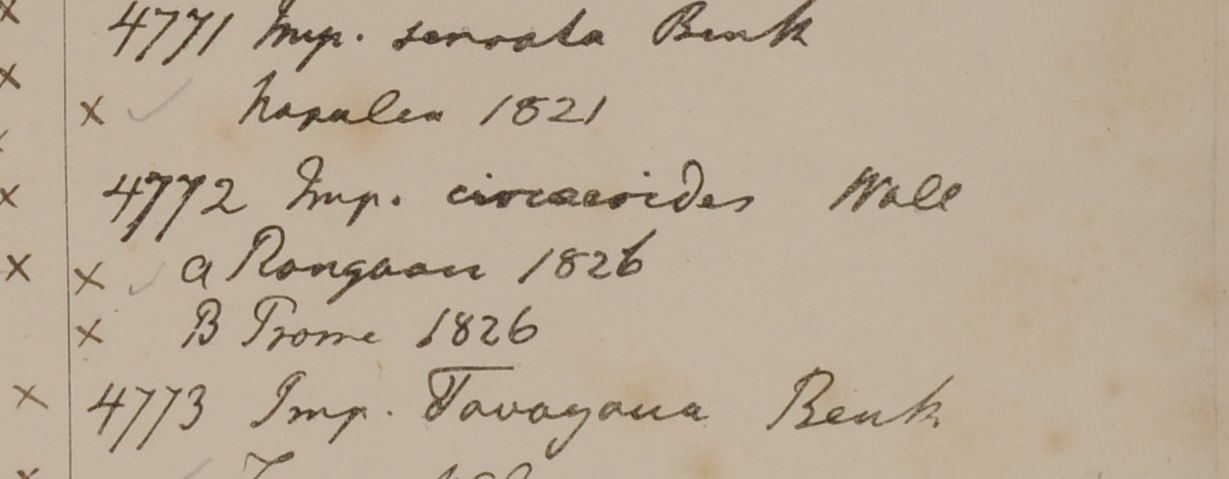 4771 Imp. serrata Benth
Napalea 1821
4772 Imp. circaeoides Wall
a Rangoon 1826
B Prome 1826
4773 Imp. Tavoyana Benth